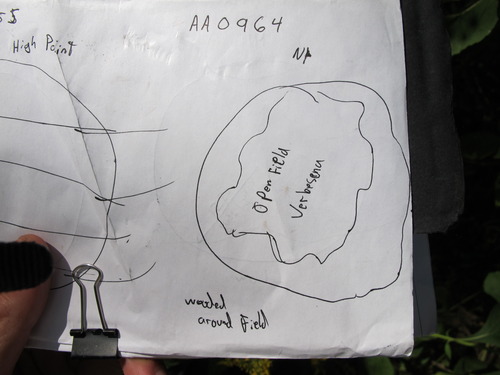 55
High Point
AA0964
N↑
Open Field
Verbesena
wooded
around Field